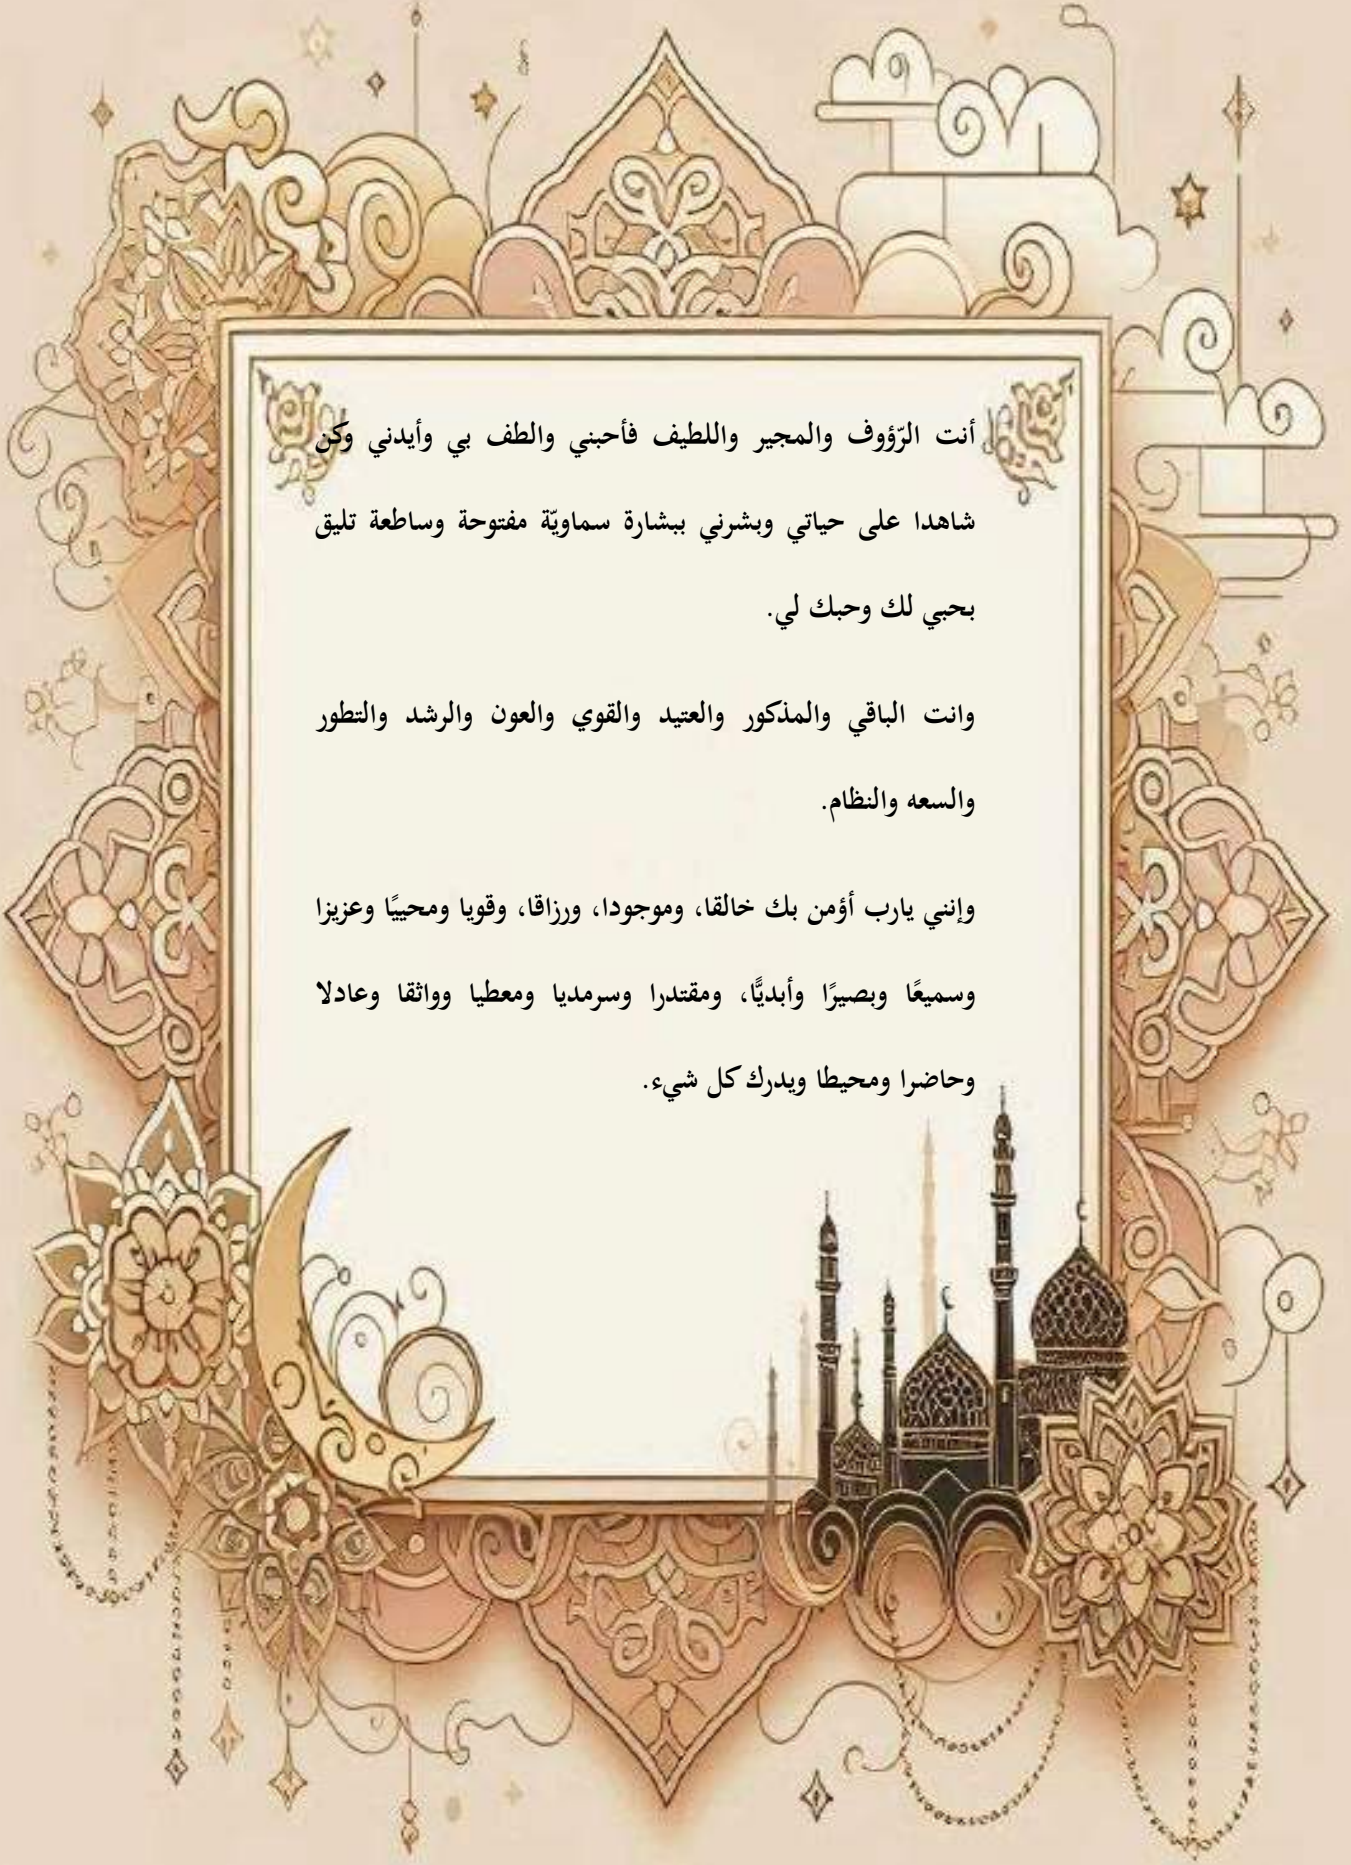 أنت الرّؤوف والمجير واللطيف فأحبني والطف بي وأيدني وكن
شاهدا على حياتي وبشرني ببشارة سماويّة مفتوحة وساطعة تليق
بحبي لك وحبك لي.
وانت الباقي والمذكور والعتيد والقوي والعون والرشد والتطور
والسعه والنظام.
وإنني يارب أؤمن بك خالقا، وموجودا، ورزاقا، وقويا ومحييًا وعزيزا
وسميعًا وبصيرًا وأبديًّا، ومقتدرا وسرمديا ومعطيا وواثقا وعادلا
وحاضرا ومحيطا ويدرك كل شيء.